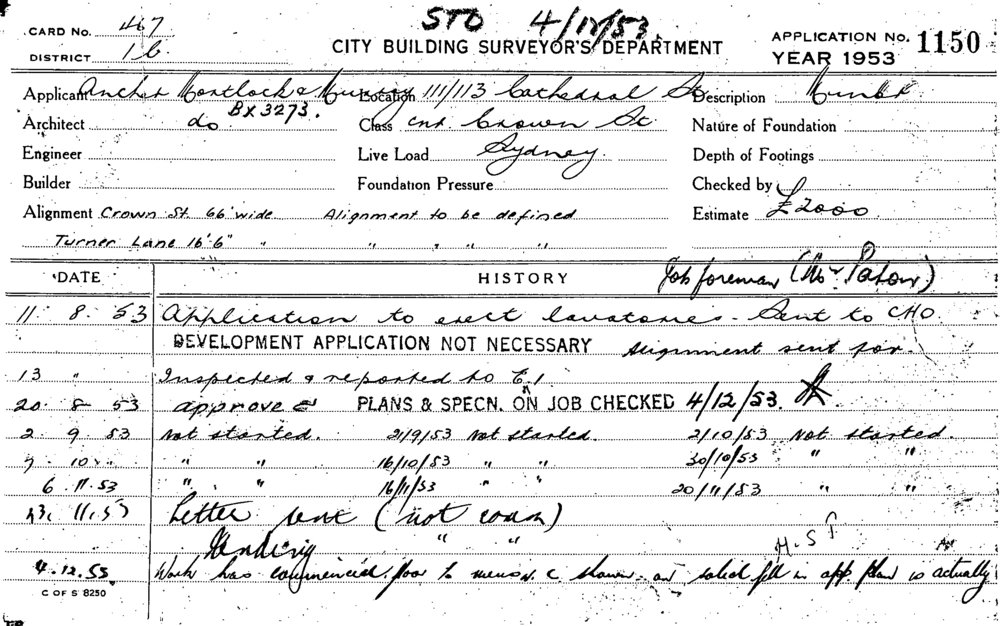 STO 4/12/53.
CARD No. 467
CITY BUILDING SURVEYOR'S DEPARTMENT
APPLICATION No. 1150
DISTRICT 16
YEAR 1953
Applicant Ancher Mortlock & Murray Location 111/113 Cathedral St Description
Architect do BX3273. Class cnr. Crown St Nature of Foundation
Engineer Live Load Sydney. Depth of Footings
Builder Foundation Pressure Checked by
Alignment Crown St. 66' wide Alignment to be defined Estimate £2000
Turner Lane 16'6" " " " " "
DATE HISTORY Job foreman (Mr Paton)
11 8 53 Application to erect lavatories - Sent to CHO.
DEVELOPMENT APPLICATION NOT NECESSARY Alignment sent for.
13 " Inspected & reported to C.1
20 8 53 approved PLANS & SPECN. ON JOB CHECKED 4/12/53.
2 9 53 Not started. 21/9/53 Not started. 2/10/53 Not started.
9 10 " " " 16/10/53 " " 30/10/53 " "
6 11 53 " " 16/11/53 " " 20/11/53 " "
23. 11. 53 Letter sent (not comm)
" "
H.S.P
4.12.53 Work has commenced. floor to shown as solid fill in app. plan is actually
C OF S 8250